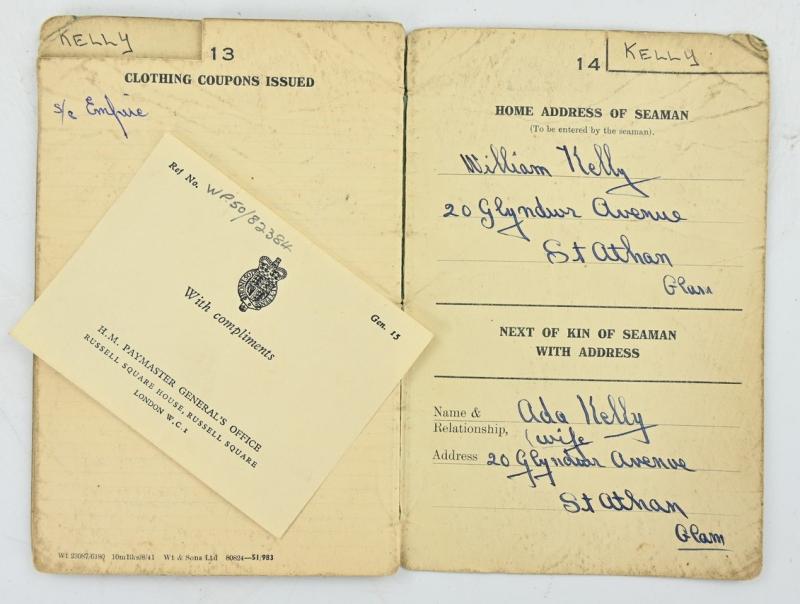 KELLY
13
CLOTHING COUPONS ISSUED
s/c Empire
Ref No. WP.50/82384
With compliments
Gen. 15
H.M. PAYMASTER GENERAL'S OFFICE
RUSSELL SQUARE HOUSE, RUSSELL SQUARE
LONDON W.C.1
Wt 23087/6180 10mBks/8/41 Wt & Sons Ltd 80824—51,983
14
KELLY
HOME ADDRESS OF SEAMAN
(To be entered by the seaman).
William Kelly
20 Glyndwr Avenue
St Athan
Glam
NEXT OF KIN OF SEAMAN
WITH ADDRESS
Name & Ada Kelly
Relationship, (wife
Address 20 Glyndwr Avenue
St Athan
Glam